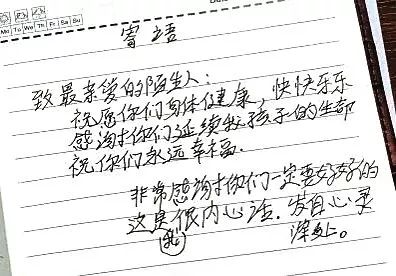 Mo Tu We Th Fr Sa Su
寄语
致最亲爱的陌生人：
祝愿你们身体健康，快快乐乐
感谢你们延续我孩子的生命
祝你们永远幸福.
非常感谢你们一定要好好的
这是我内心话.发自心灵